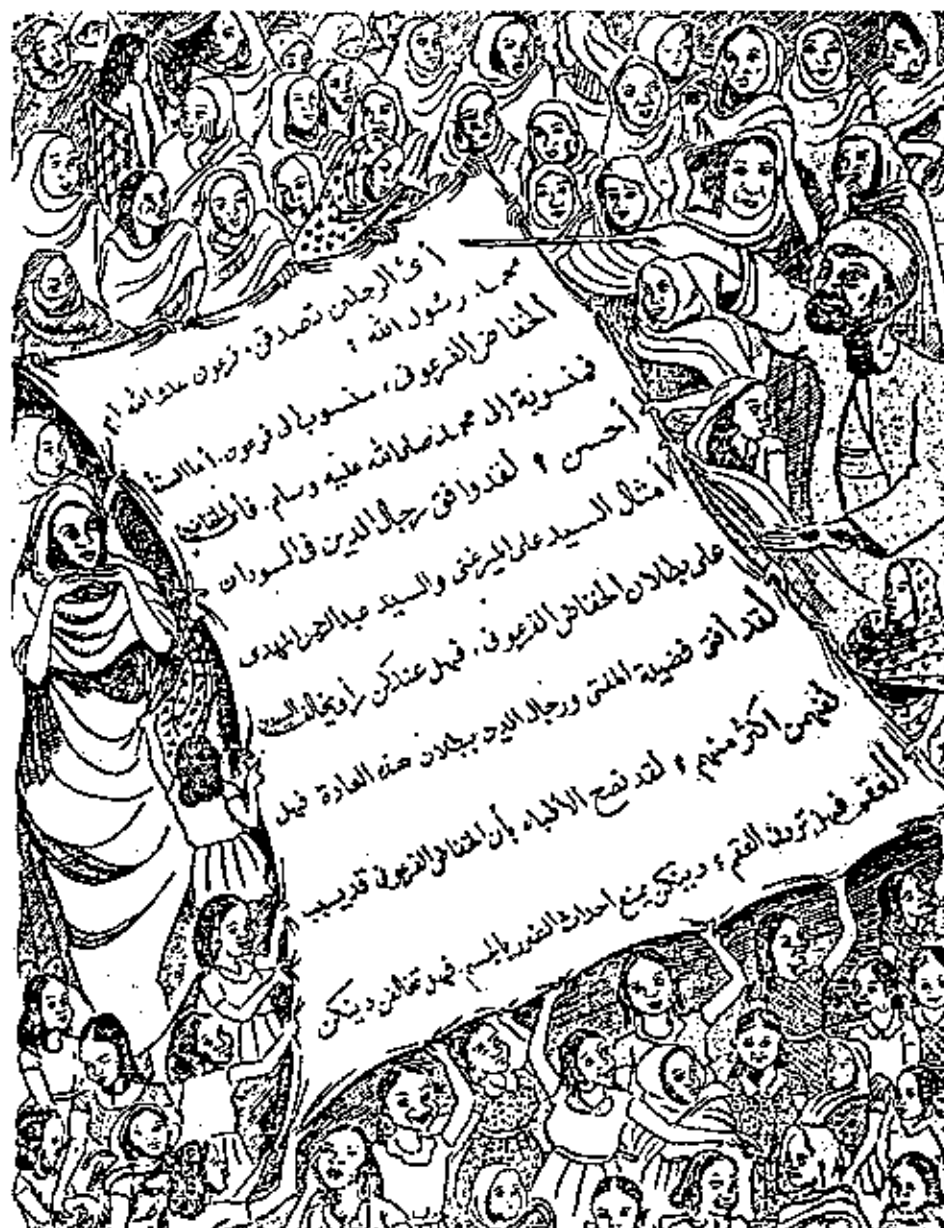 أى الرجلين تصدقن، فرعون عدو الله أم
محمد رسول الله ؟
الخفاض الفرعونى، منسوب الى فرعون. أما السنة
فمنسوبة الى محمد صلى الله عليه وسلم. فأى الخفاض
أحسن ؟ لقد وافق رجال الدين فى السودان
أمثال السيد على الميرغنى والسيد عبد الرحمن المهدى
على بطلان الخفاض الفرعونى، فهل عندكن
لقد أفتى فضيلة المفتى ورجال الدين ببطلان هذه العادة فهل
تفهمن أكثر منهم ؟ لقد نصح الأطباء بأن الخفاض الفرعونى قد يسبب
العقم فهل تردن العقم ؟ دينكن يمنع احداث الضرر بالجسم فهل تخالفن دينكن